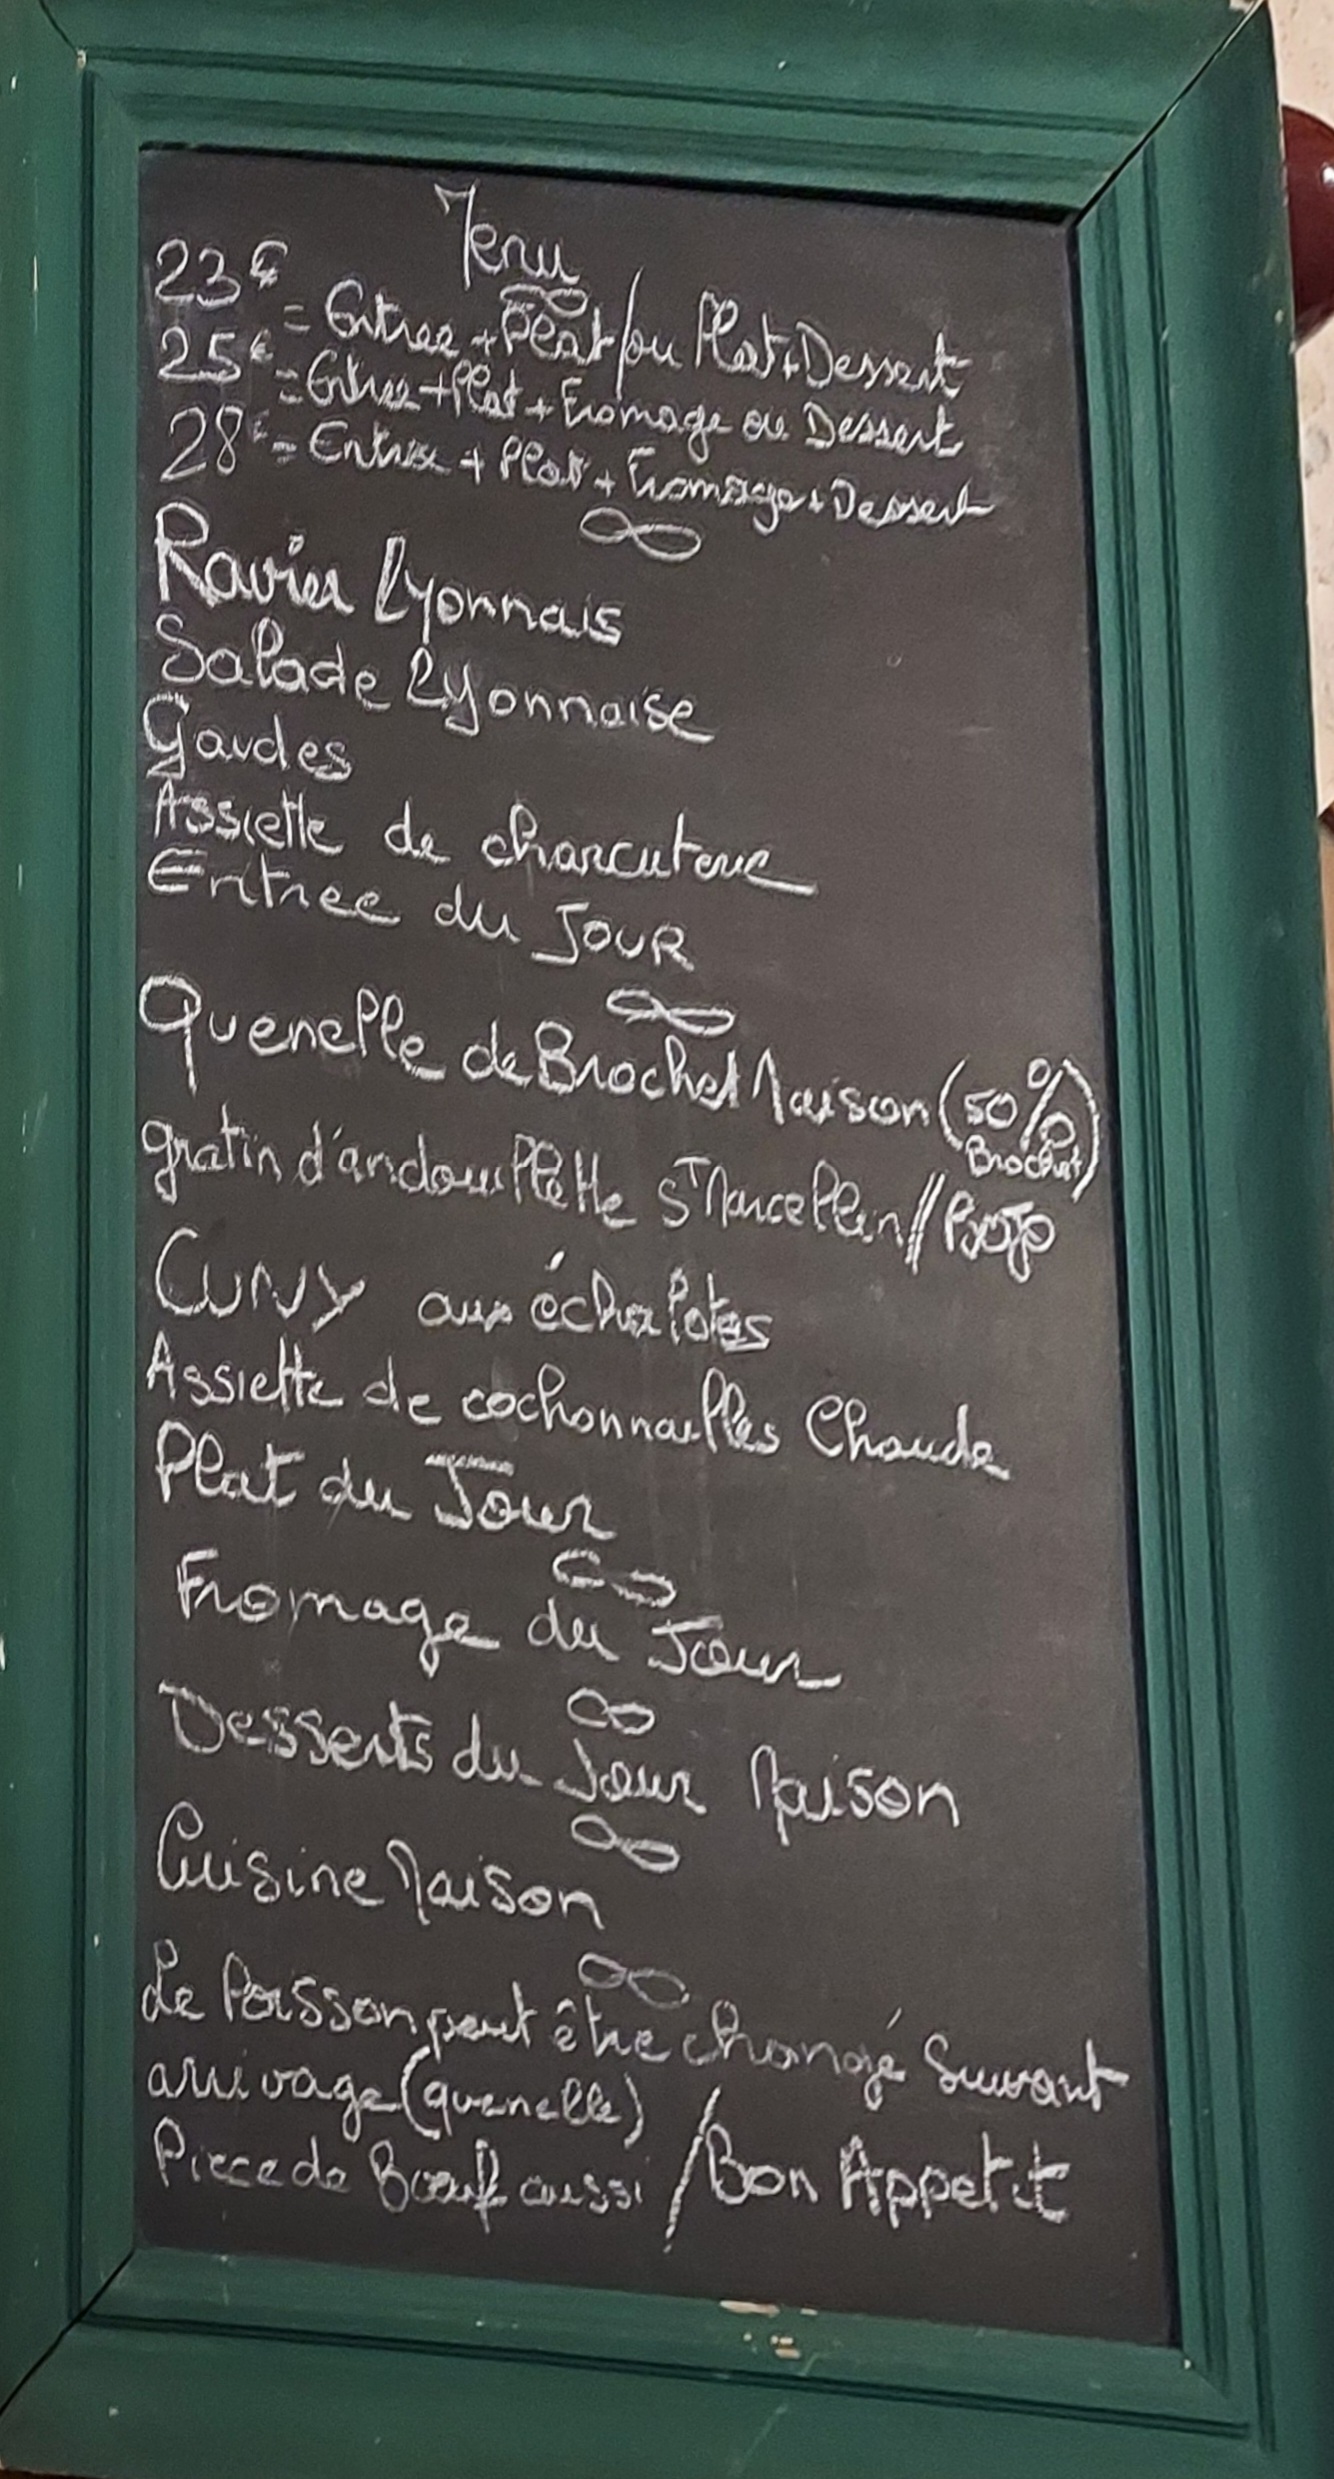 Menu
23€ = Entree + Plat / ou Plat + Dessert
25€ = Entree + Plat + Fromage ou Dessert
28€ = Entree + Plat + Fromage + Dessert
Ravier Lyonnais
Salade Lyonnaise
Gaudes
Assiette de charcuterie
Entree du JOUR
Quenelle de Brochet Maison (50%
Brochet)
gratin d'andouillette ST Marcellin //
CUNY aux échalotes
Assiette de cochonnailles Chaude
Plat du Jour
Fromage du Jour
Desserts du Jour Maison
Cuisine Maison
Le Poisson peut être changé Suivant
arrivage (quenelle)
Piece de Boeuf aussi / Bon Appetit